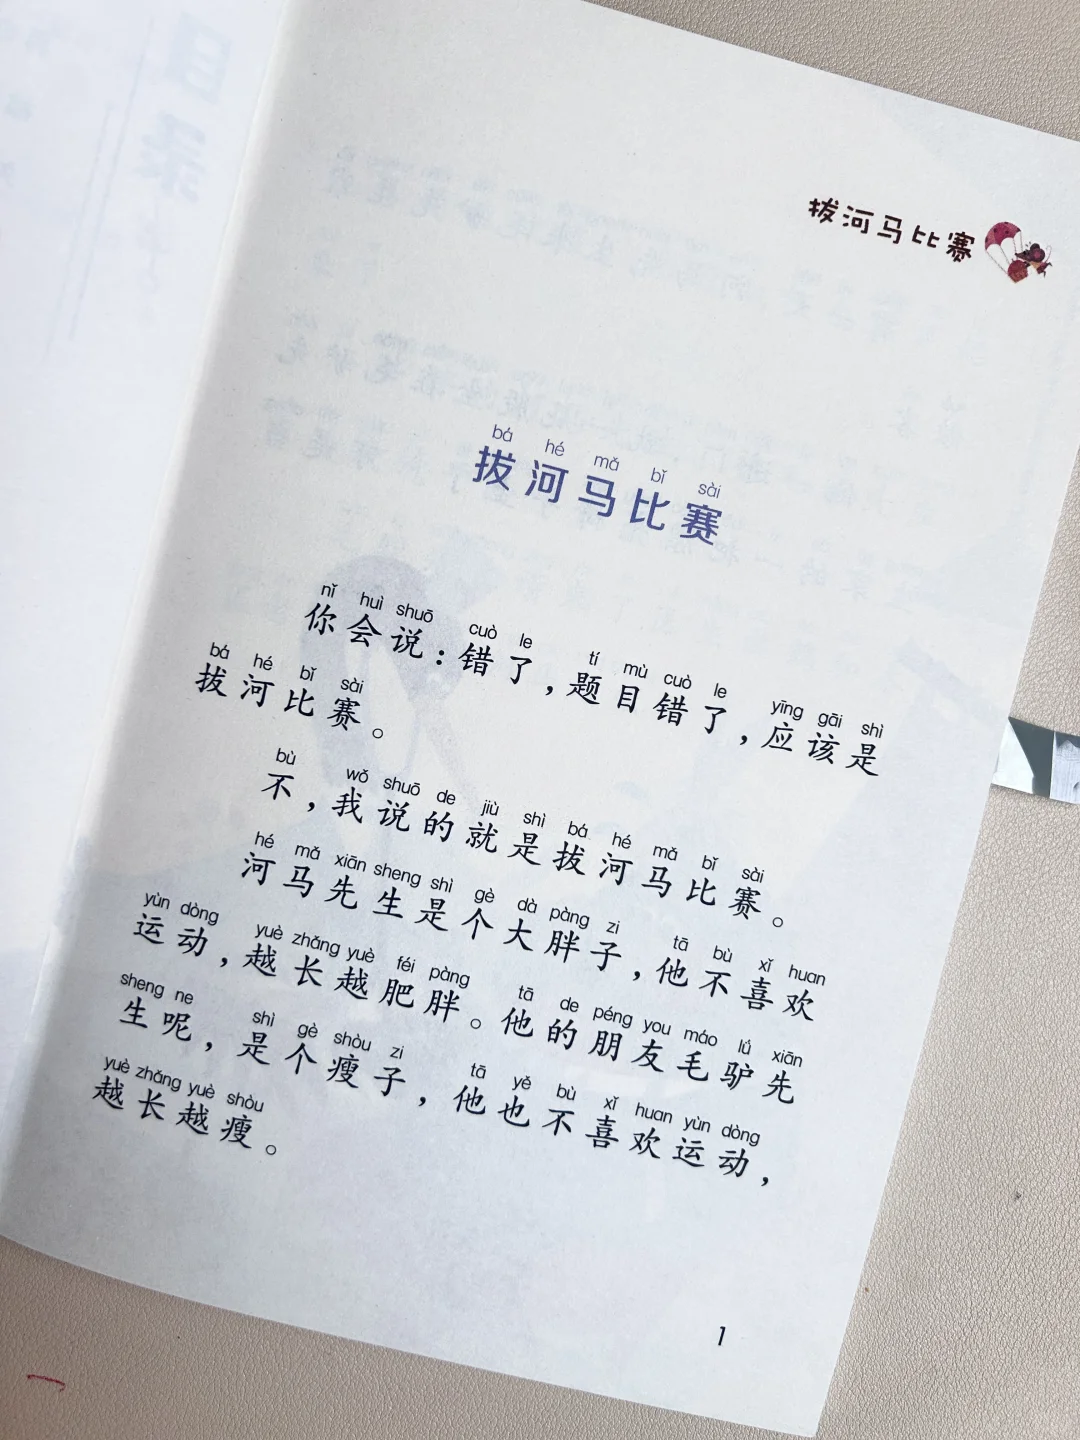 拔河马比赛
bá hé mǎ bǐ sài
拔河马比赛
nǐ huì shuō cuò le tí mù cuò le yīng gāi shì
你会说：错了，题目错了，应该是
bá hé bǐ sài
拔河比赛。
bù wǒ shuō de jiù shì bá hé mǎ bǐ sài
不，我说的就是拔河马比赛。
hé mǎ xiān sheng shì gè dà pàng zi tā bù xǐ huan
河马先生是个大胖子，他不喜欢
yùn dòng yuè zhǎng yuè féi pàng tā de péng you máo lǘ xiān
运动，越长越肥胖。他的朋友毛驴先
sheng ne shì gè shòu zi tā yě bù xǐ huan yùn dòng
生呢，是个瘦子，他也不喜欢运动，
yuè zhǎng yuè shòu
越长越瘦。
1
目录